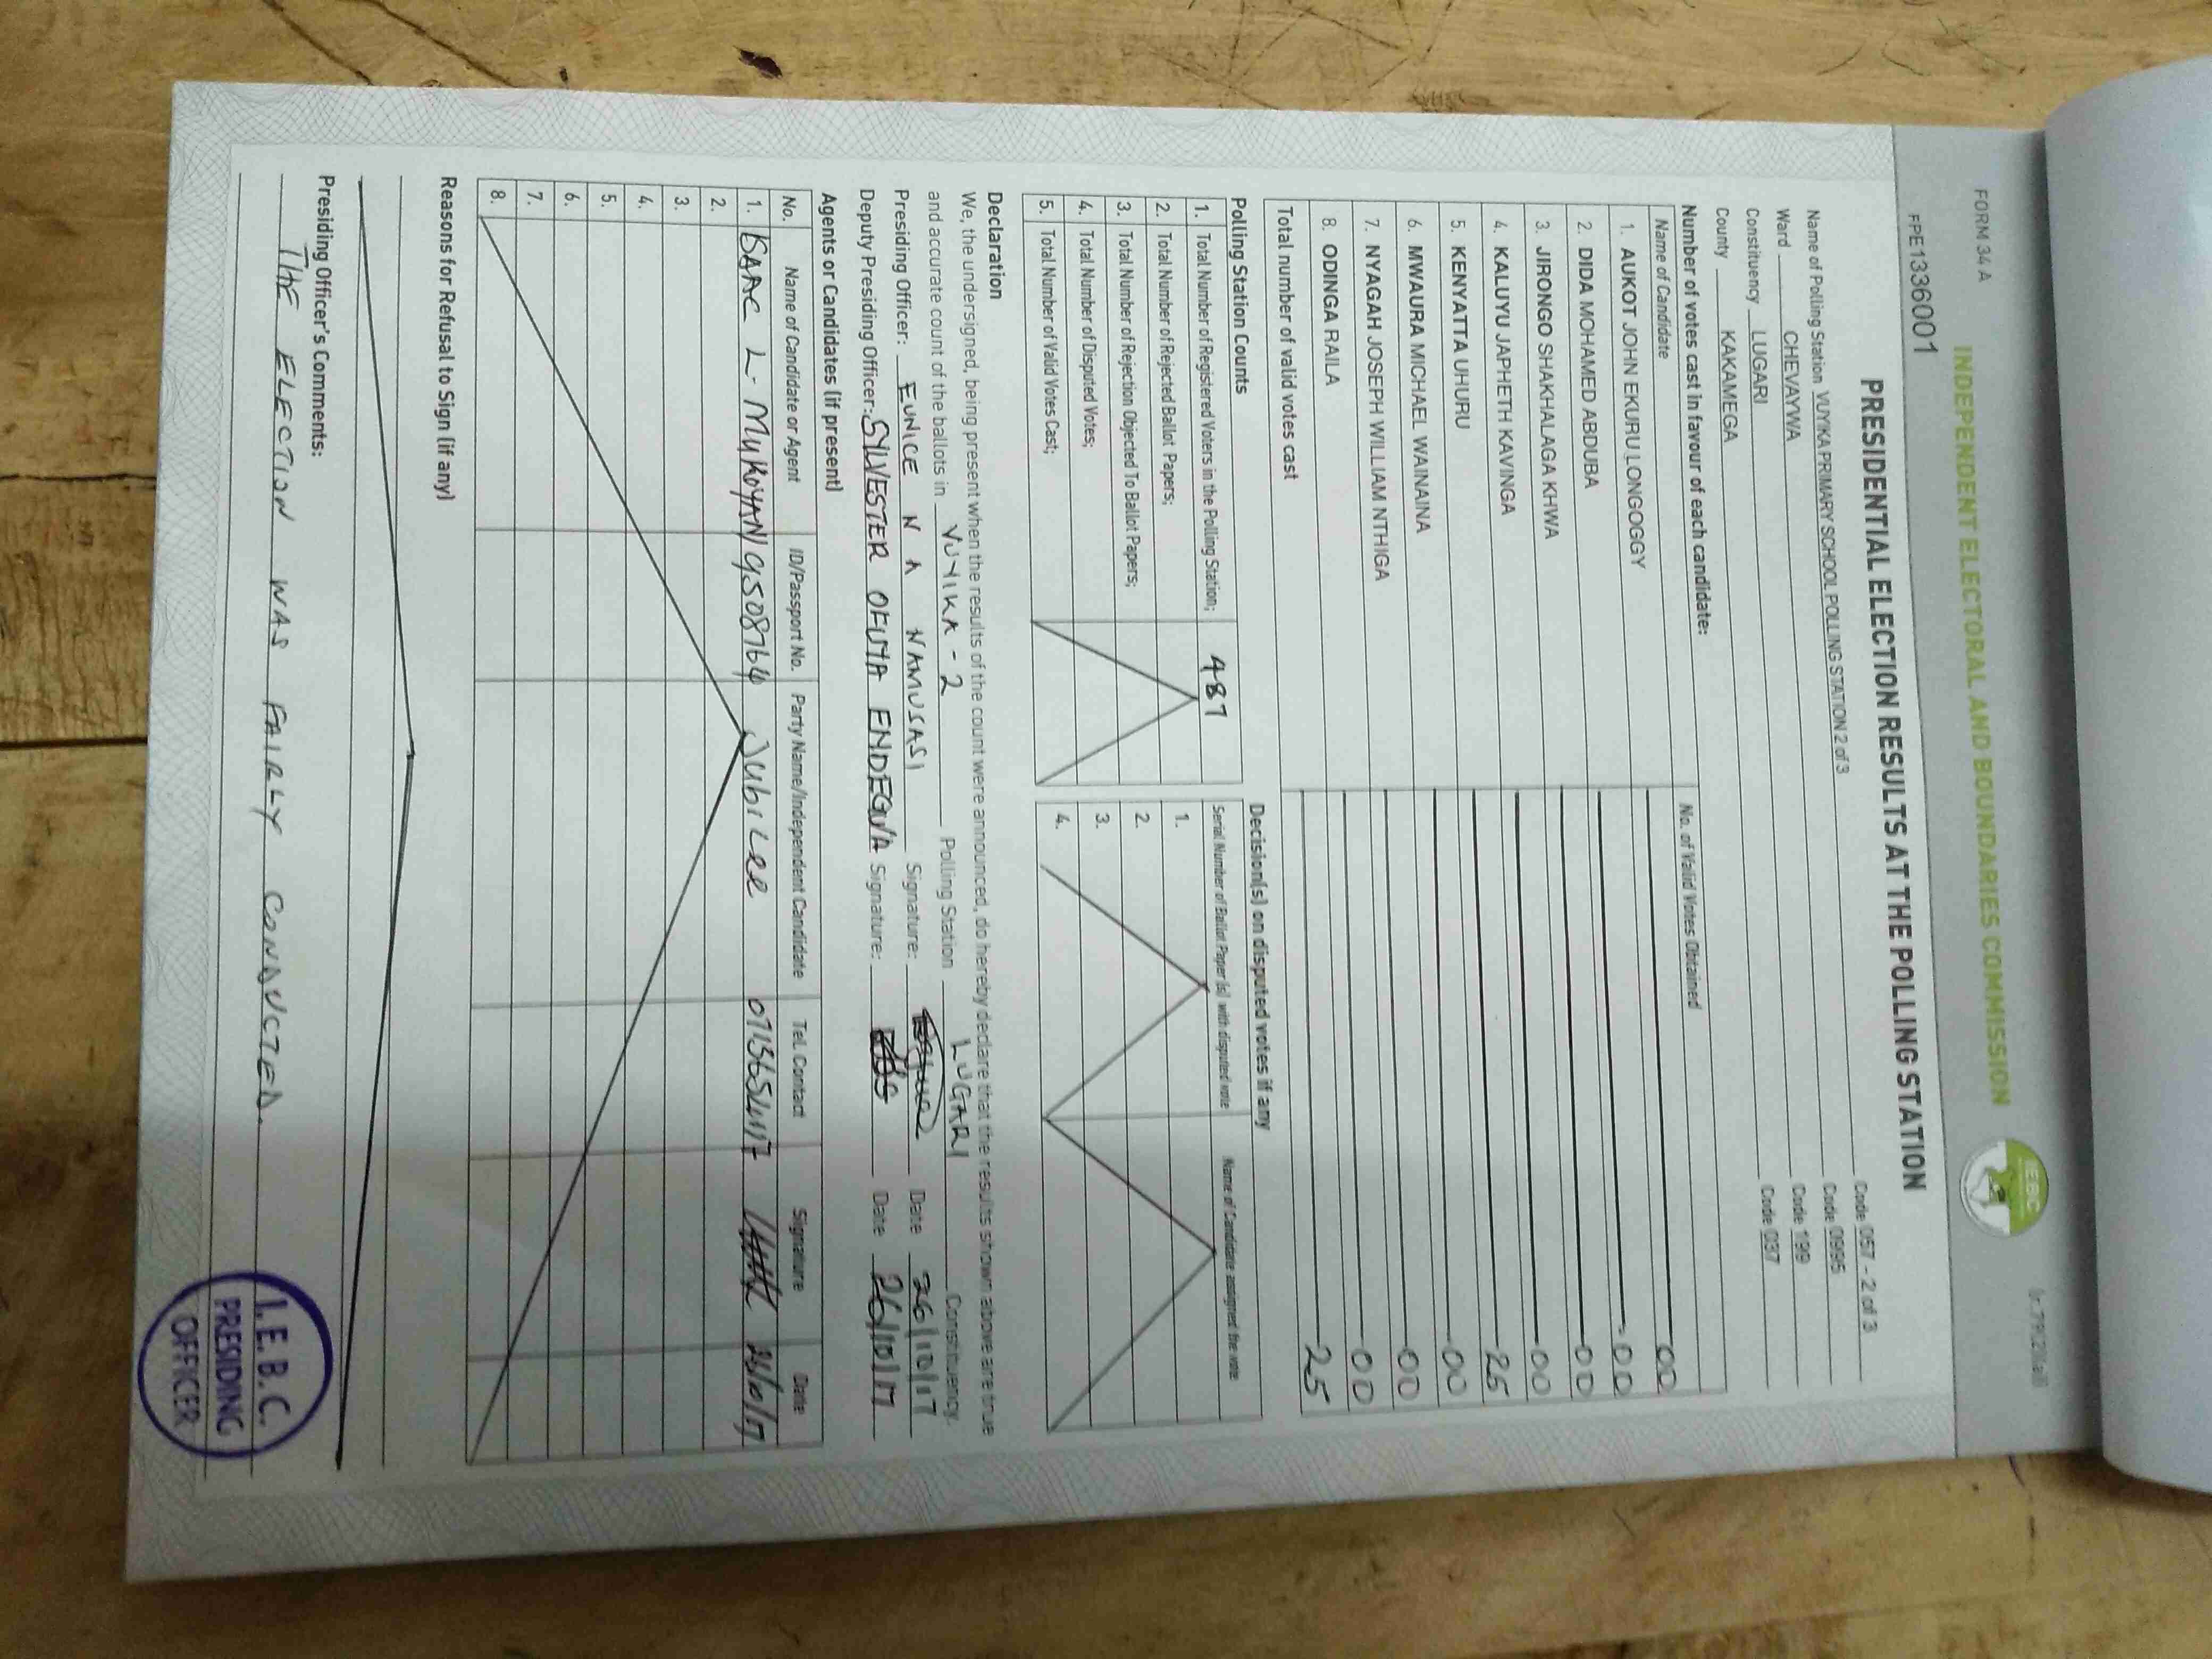 FORM 34 A
INDEPENDENT ELECTORAL AND BOUNDARIES COMMISSION
IEBC
FPE1336001
PRESIDENTIAL ELECTION RESULTS AT THE POLLING STATION
Name of Polling Station VUYIKA PRIMARY SCHOOL POLLING STATION 2 of 3 Code 057 - 2 of 3
Ward CHEVAYWA Code 0995
Constituency LUGARI Code 199
County KAKAMEGA Code 037
Number of votes cast in favour of each candidate:
Name of Candidate No. of Valid Votes Obtained
1. AUKOT JOHN EKURU LONGOGGY 00
2. DIDA MOHAMED ABDUBA 00
3. JIRONGO SHAKHALAGA KHWA 00
4. KALUYU JAPHETH KAVINGA 00
5. KENYATTA UHURU 25
6. MWAURA MICHAEL WAINAINA 00
7. NYAGAH JOSEPH WILLIAM NTHIGA 00
8. ODINGA RAILA 00
Total number of valid votes cast 25
Polling Station Counts
1. Total Number of Registered Voters in the Polling Station; 487
2. Total Number of Rejected Ballot Papers;
3. Total Number of Rejection Objected To Ballot Papers;
4. Total Number of Disputed Votes;
5. Total Number of Valid Votes Cast;
Decision(s) on disputed votes if any
Serial Number of Ballot Paper (s) with disputed vote Name of Candidate assigned the vote
1.
2.
3.
4.
Declaration
We, the undersigned, being present when the results of the count were announced, do hereby declare that the results shown above are true
and accurate count of the ballots in VUYIKA - 2 Polling Station LUGARI Constituency.
Presiding Officer: EUNICE N A NAMUSASI Signature: Date 26/10/17
Deputy Presiding Officer: SYLVESTER OFUTA ENDEGVA Signature: Date 26/10/17
Agents or Candidates (if present)
No. Name of Candidate or Agent ID/Passport No. Party Name/Independent Candidate Tel. Contact Signature Date
1. ISAAC L. MUKOYANI Jubilee 26/10/17
2.
3.
4.
5.
6.
7.
8.
Reasons for Refusal to Sign (if any)
Presiding Officer's Comments:
THE ELECTION WAS FAIRLY CONDUCTED.
I.E.B.C.
PRESIDING
OFFICER